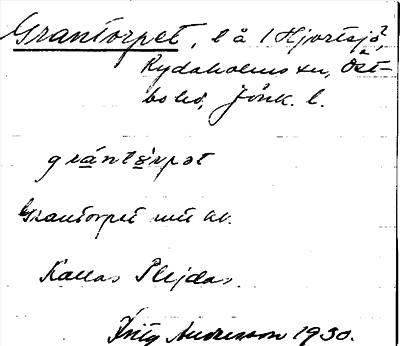 Grantorpet, l å 1 Hjortsjö,
Rydaholms sn, Öst-
bo hd, Jönk. l.
grántòrpət
Grantorpet mtl kr.
Kallas Plejdas.
Fritz Andersson 1930.